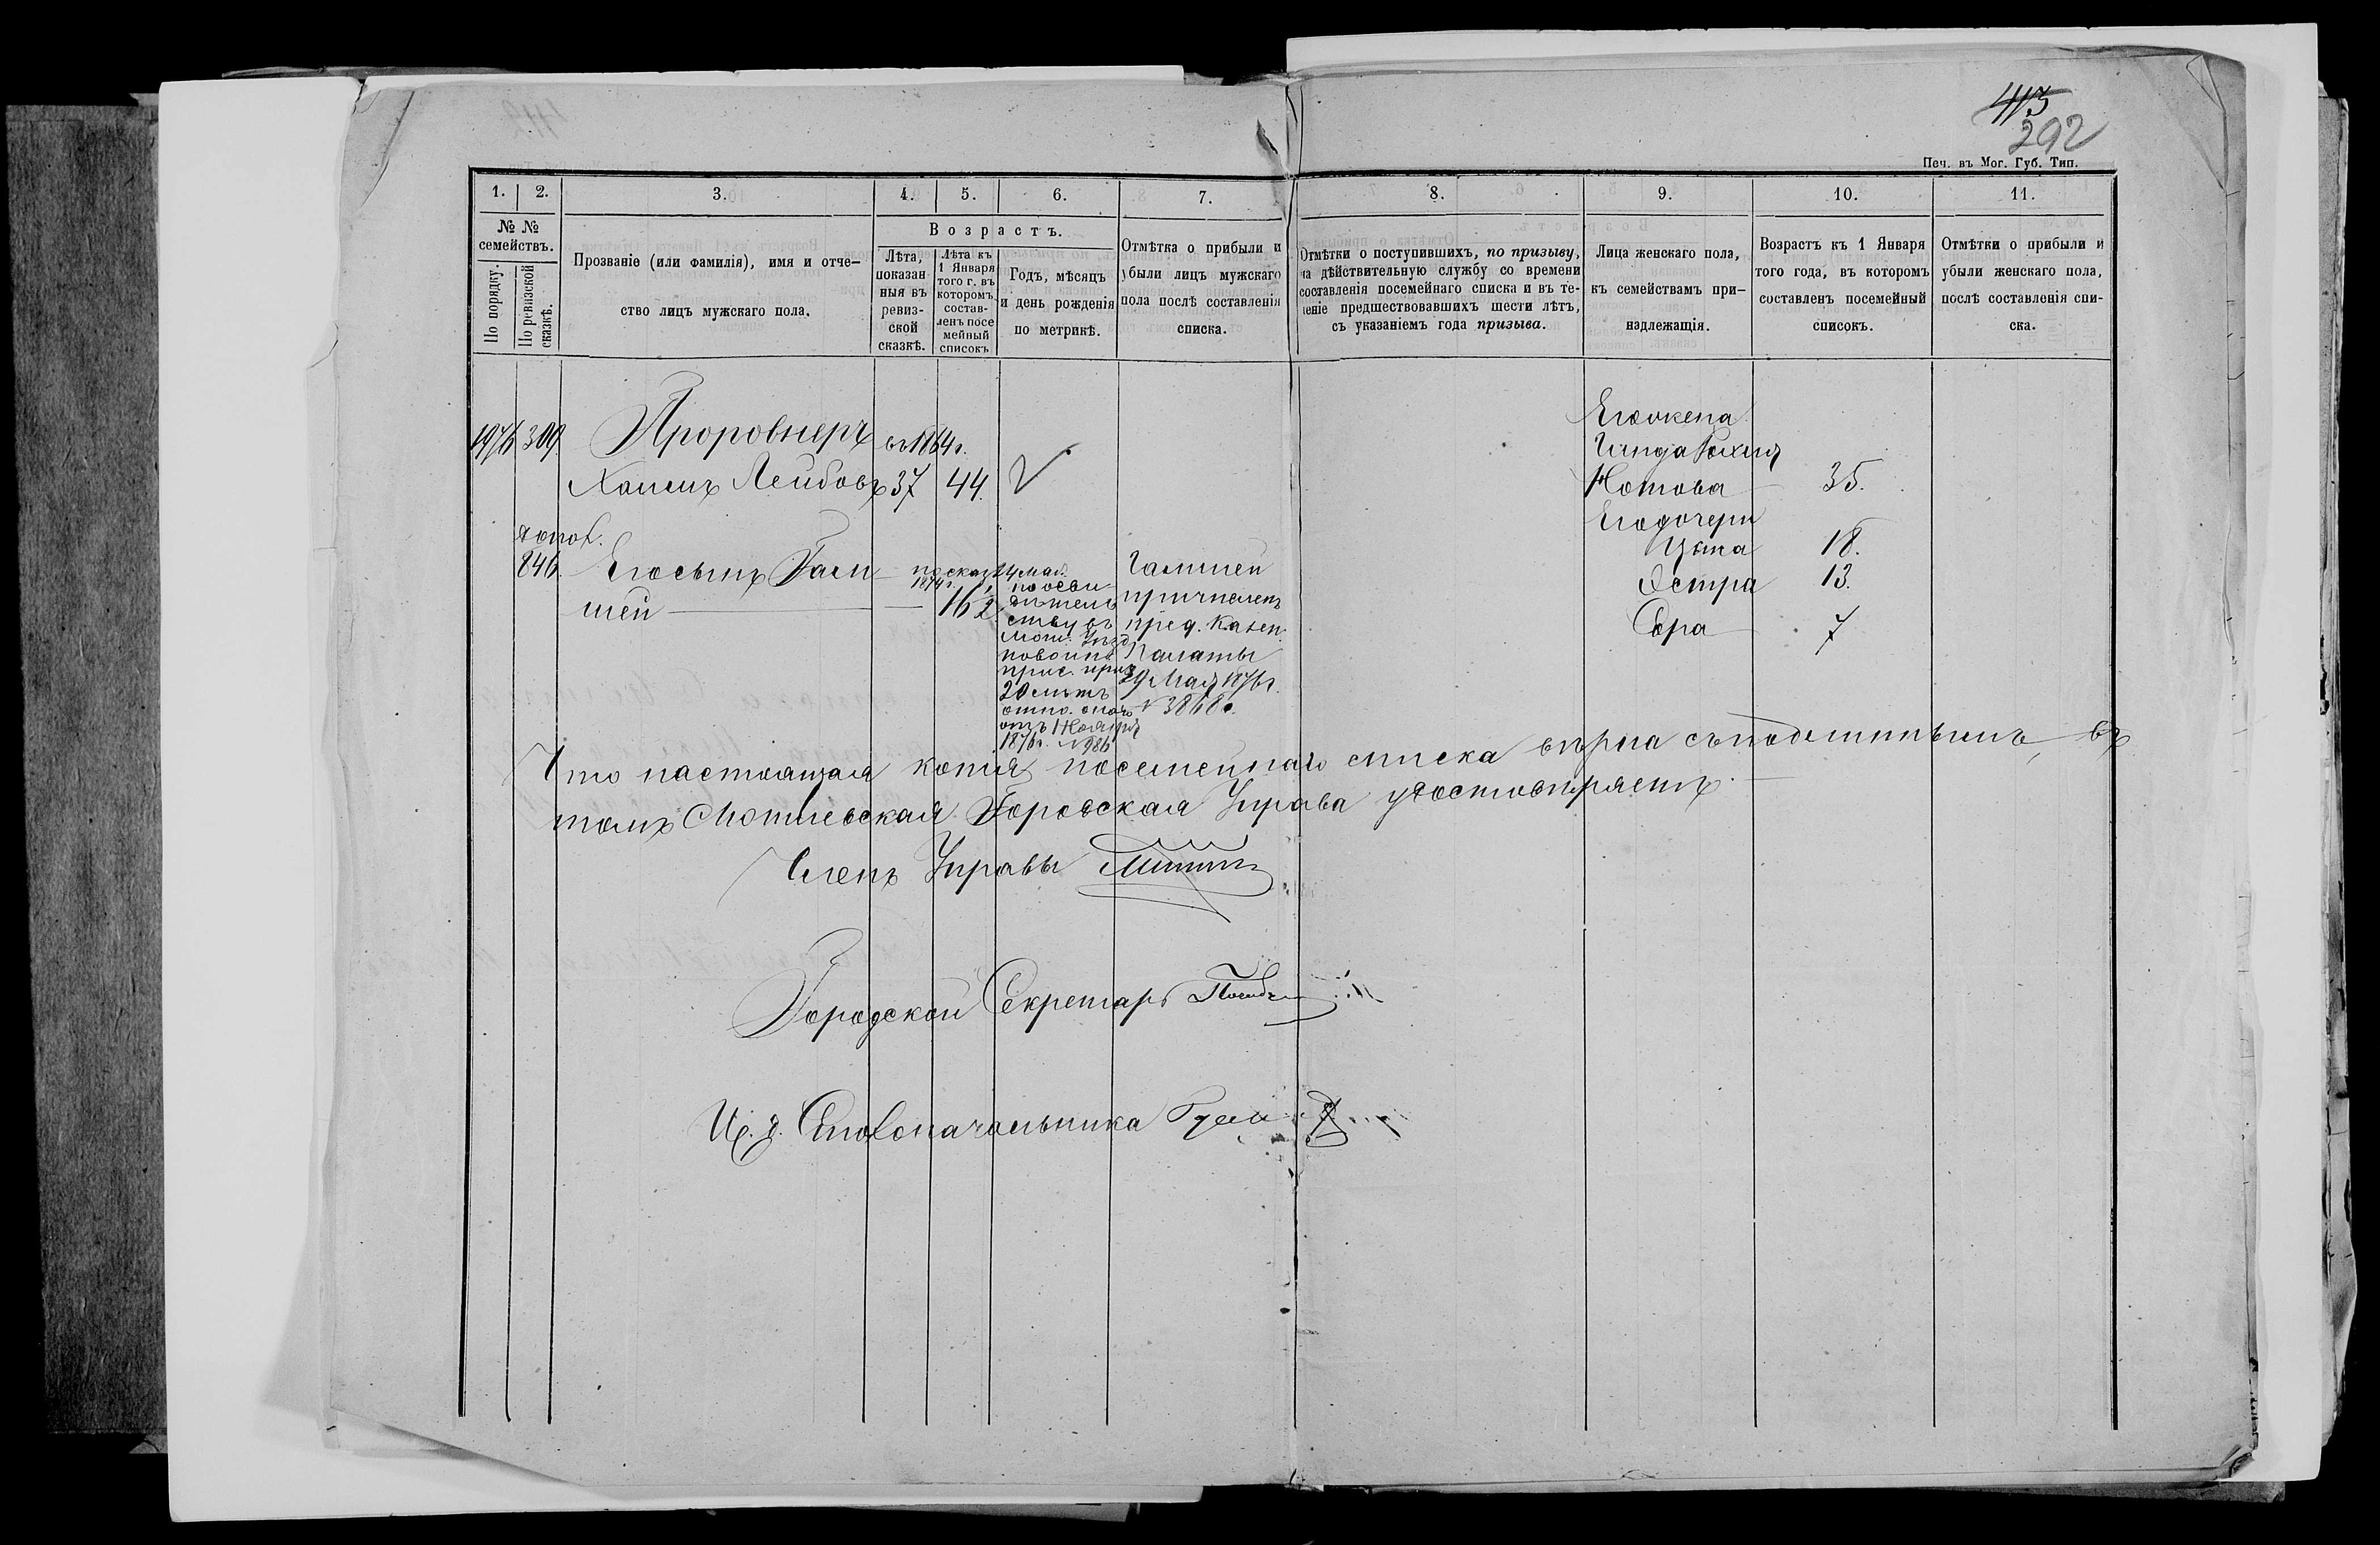 413
292
Печ. въ Мог. Губ. Тип.
1. 2. 3. 4. 5. 6. 7. 8. 9. 10. 11.
№ № семействъ.
По порядку.
По ревизской сказкѣ.
Прозваніе (или фамилія), имя и отче-
ство лицъ мужскаго пола.
Возрастъ.
Лѣта,
показан-
ныя въ
ревиз-
ской
сказкѣ.
Лѣта къ
1 Января
того г. въ
которомъ
состав-
ленъ посе
мейный
списокъ
Годъ, мѣсяцъ
и день рожденія
по метрикѣ.
Отмѣтка о прибыли и
убыли лицъ мужскаго
пола послѣ составленія
списка.
Отмѣтки о поступившихъ, по призыву,
на дѣйствительную службу со времени
составленія посемейнаго списка и въ те-
ченіе предшествовавшихъ шести лѣтъ,
съ указаніемъ года призыва.
Лица женскаго пола,
къ семействамъ при-
надлежащія.
Возрастъ къ 1 Января
того года, въ которомъ
составленъ посемейный
списокъ.
Отмѣтки о прибыли и
убыли женскаго пола,
послѣ составленія спи-
ска.
1976 309 Проровнеръ въ 1864 г.
Хаимъ Лейбовъ 37 44.
допол.
846. Его сынъ Гам
шей 16 1/2
по сказ.
1874 г.
24 мая.
по осви
дѣтель
ству въ
Мог. Уѣзд.
по воинс.
прис. приз.
20 лѣтъ
отно. оного
отъ 1 Ноября
1876 г. № 986
Гамшей
причисленъ
пред. Казен.
Палаты
29 Мая 1876 г.
№ 3868.
Его жена
Гинда Рохля
Нотова 35.
Его дочери
Цыпа 18.
Эстра 13.
Сора 7
Что настоящая копія посемейнаго списка вѣрна съ подлиннымъ, въ
томъ Могилевская Городская Управа удостовѣряетъ.
Членъ Управы
Городской Секретарь
И. д. Столоначальника